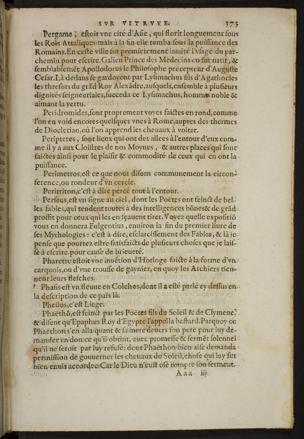 SVR VITRVVE. 373
Pergame, estoit vne cité d'Asie, qui florit longuement sous
les Rois Attaliques: mais à la fin elle tomba sous la puissance des
Romains. En ceste ville fut premierement inuété l'vsage du par-
chemin pour escrire. Galien Prince des Medecins en fut natif, &
semblablemét Apollodorus le Philosophe precepteur d'Auguste
Cesar. Là dedans se gardoyent par Lysimachus fils d'Agathocles
les thresors du grád Roy Alexádre, ausquels, ensemble à plusieurs
dignités seigneuriales, succeda ce Lysimachus, homme noble &
aimant la vertu.
Peridromides, sont proprement voyes faictes en rond, comme
l'on en void encores quelques vnes à Rome, aupres des thermes
de Diocletian, où l'on apprend les cheuaux à voiter.
Peripteres, sont lieux qui ont des allees à l'entour d'eux com-
me il y a aux Cloistres de nos Moynes, & autres places qui sont
faictes ainsi pour le plaisir & commodité de ceux qui en ont la
puissance.
Perimetros, est ce que nous disons communement la circon-
ference, ou rondeur d'vn cercle.
Peritriton, c'est à dire percé tout à l'entour.
Perseus, est vn signe au ciel, dont les Poëtes ont feinct de bel-
les fables, qui tendent toutes à des intelligences honestes & de grád
proffit pour ceux qui les en sçauent tirer. Voyez quelle expositió
vous en donnera Fulgentius, enuiron la fin du premier liure de
ses Mythologies: c'est à dire, esclarcissement des Fables, & là ie
pense que pourrez estre satisfaicts de plusieurs choses que je lais-
se à escrire pour cause de brieueté.
Pharetre estoit vne inuétion d'Horloge faicte à la forme d'vn
carquois, ou d'vne trousse de gaynier, en quoy les Archiers tien-
nent leurs flesches.
Phasis est vn fleuue en Colchos, dont il a esté parlé cy dessus en
la description de ce païs là.
Phellos, c'est Liege.
Phaëthō, est feinct par les Poëtes fils du Soleil & de Clymene:
& disent qu'Epaphus Roy d'Egypte l'appella bastard. Parquoy ce
Phaëthon s'en alla quant & sa mere deuers son pere pour luy de-
mander en don ce qu'il obtint, auec promesse & serment solennel
qu'il ne seroit par luy refusé: dont Phaëthon bien aise demanda
permission de gouuerner les cheuaux du Soleil, chose qui luy fut
bien enuis accordee: Car le Dieu n'eust osé rompre son serment.
Aaa iij